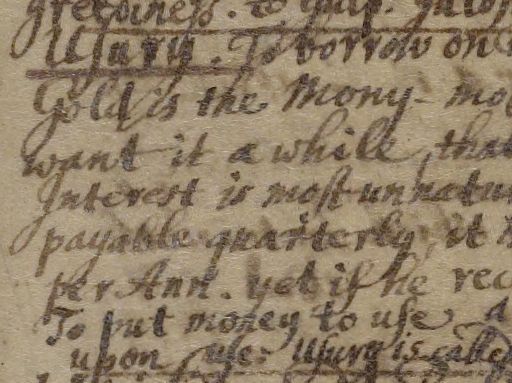 greediness. to gulp.
Usury. To borrow on
Gold is the Mony-
want it a while, that
Interest is most unnatur
payable quarterly, it
per Ann. yet if he rec
To put money to use a
upon use. Usury is called